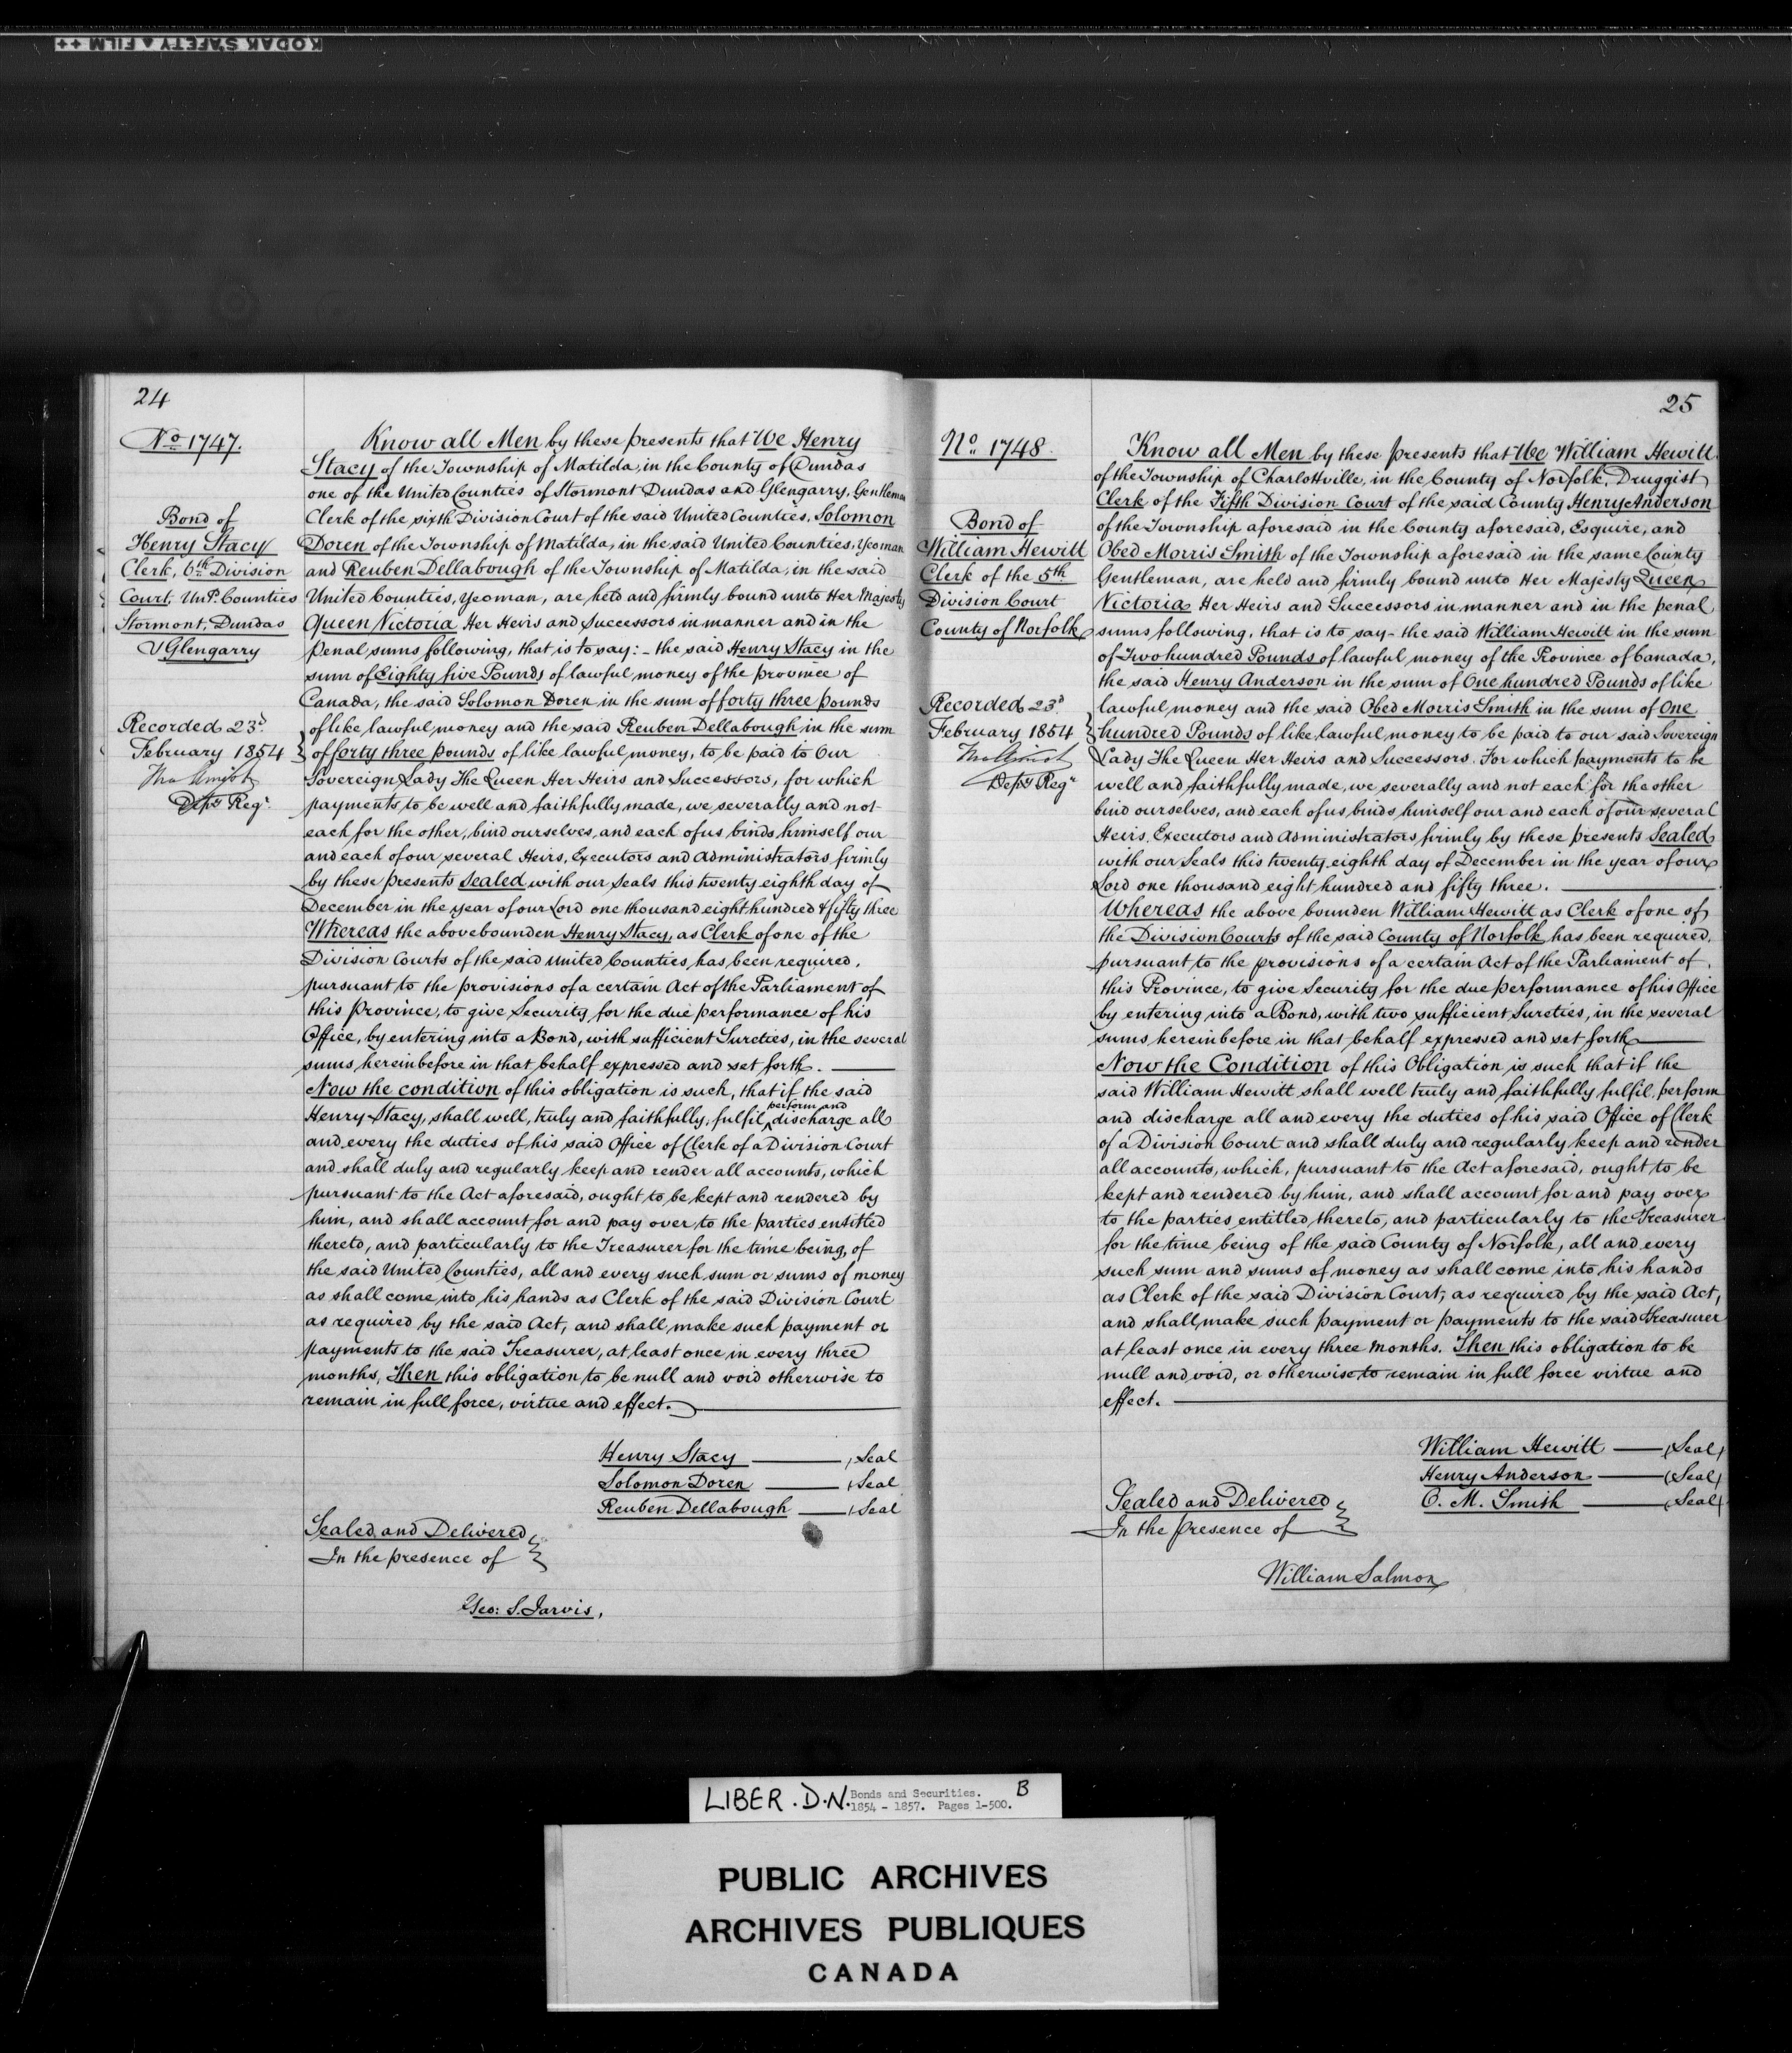 KODAK SAFETY FILM ++
24
No 1747.
Bond of
Henry Stacy
Clerk, 6th Division
Court, Und. Counties
Stormont, Dundas
& Glengarry
Recorded 23d
February 1854
Depy Regr.
Know all Men by these presents that We Henry
Stacy of the Township of Matilda, in the County of Dundas
one of the United Counties of Stormont Dundas and Glengarry, Gentleman
Clerk of the sixth Division Court of the said United Counties, Solomon
Doren of the Township of Matilda, in the said United Counties, Yeoman
and Reuben Dellabough of the Township of Matilda, in the said
United Counties, Yeoman, are held and firmly bound unto Her Majesty
Queen Victoria Her Heirs and Successors in manner and in the
Penal sums following, that is to say:- the said Henry Stacy in the
sum of Eighty five Pounds of lawful money of the province of
Canada, the said Solomon Doren in the sum of forty three pounds
of like lawful money and the said Reuben Dellabough in the sum
of forty three pounds of like lawful money, to be paid to Our
Sovereign Lady The Queen Her Heirs and Successors, for which
payments to be well and faithfully made, we severally and not
each for the other, bind ourselves, and each of us binds himself our
and each of our several Heirs, Executors and Administrators firmly
by these presents Sealed with our Seals this twenty eighth day of
December in the year of our Lord one thousand eight hundred & fifty three
Whereas the above bounden Henry Stacy, as Clerk of one of the
Division Courts of the said United Counties, has been required,
pursuant to the provisions of a certain Act of the Parliament of
this Province, to give Security for the due performance of his
Office, by entering into a Bond, with sufficient Sureties, in the several
sums hereinbefore in that behalf expressed and set forth.
Now the condition of this obligation is such, that if the said
Henry Stacy, shall well, truly and faithfully, fulfil, perform and discharge all
and every the duties of his said Office of Clerk of a Division Court
and shall duly and regularly keep and render all accounts, which
pursuant to the Act aforesaid, ought to be kept and rendered by
him, and shall account for and pay over to the parties entitled
thereto, and particularly to the Treasurer for the time being, of
the said United Counties, all and every such sum or sums of money
as shall come into his hands as Clerk of the said Division Court
as required by the said Act, and shall make such payment or
payments to the said Treasurer, at least once in every three
months, Then this obligation to be null and void otherwise to
remain in full force, virtue and effect.
Henry Stacy (Seal
Solomon Doren (Seal
Reuben Dellabough (Seal
Sealed and Delivered
In the presence of
Geo: S. Jarvis,
25
No. 1748.
Bond of
William Hewitt
Clerk of the 5th
Division Court
County of Norfolk
Recorded 23d
February 1854
Depy Regr
Know all Men by these presents that We William Hewitt
of the Township of Charlottville, in the County of Norfolk, Druggist
Clerk of the Fifth Division Court of the said County Henry Anderson
of the Township aforesaid in the County aforesaid, Esquire, and
Obed Morris Smith of the Township aforesaid in the same County
Gentleman, are held and firmly bound unto Her Majesty Queen
Victoria Her Heirs and Successors in manner and in the penal
sums following, that is to say - the said William Hewitt in the sum
of Two hundred Pounds of lawful money of the Province of Canada,
the said Henry Anderson in the sum of One hundred Pounds of like
lawful money and the said Obed Morris Smith in the sum of One
hundred Pounds of like lawful money to be paid to our said Sovereign
Lady The Queen Her Heirs and Successors. For which payments to be
well and faithfully made, we severally and not each for the other
bind ourselves, and each of us binds himself our and each of our several
Heirs, Executors and Administrators firmly by these presents Sealed
with our Seals this twenty eighth day of December in the year of our
Lord one thousand eight hundred and fifty three.
Whereas the above bounden William Hewitt as Clerk of one of
the Division Courts of the said County of Norfolk has been required,
pursuant to the provisions of a certain Act of the Parliament of
this Province, to give Security for the due performance of his Office
by entering into a Bond, with two sufficient Sureties, in the several
sums hereinbefore in that behalf expressed and set forth
Now the Condition of this Obligation is such that if the
said William Hewitt shall well truly and faithfully fulfil, perform
and discharge all and every the duties of his said Office of Clerk
of a Division Court and shall duly and regularly keep and render
all accounts, which, pursuant to the Act aforesaid, ought to be
kept and rendered by him, and shall account for and pay over
to the parties entitled thereto, and particularly to the Treasurer
for the time being of the said County of Norfolk, all and every
such sum and sums of money as shall come into his hands
as Clerk of the said Division Court, as required by the said Act,
and shall make such payment or payments to the said Treasurer
at least once in every three months. Then this obligation to be
null and void, or otherwise to remain in full force virtue and
effect.
William Hewitt (Seal)
Henry Anderson (Seal)
O. M. Smith (Seal)
Sealed and Delivered
In the presence of
William Salmon
LIBER. D.N. Bonds and Securities. B
1854 - 1857. Pages 1-500.
PUBLIC ARCHIVES
ARCHIVES PUBLIQUES
CANADA